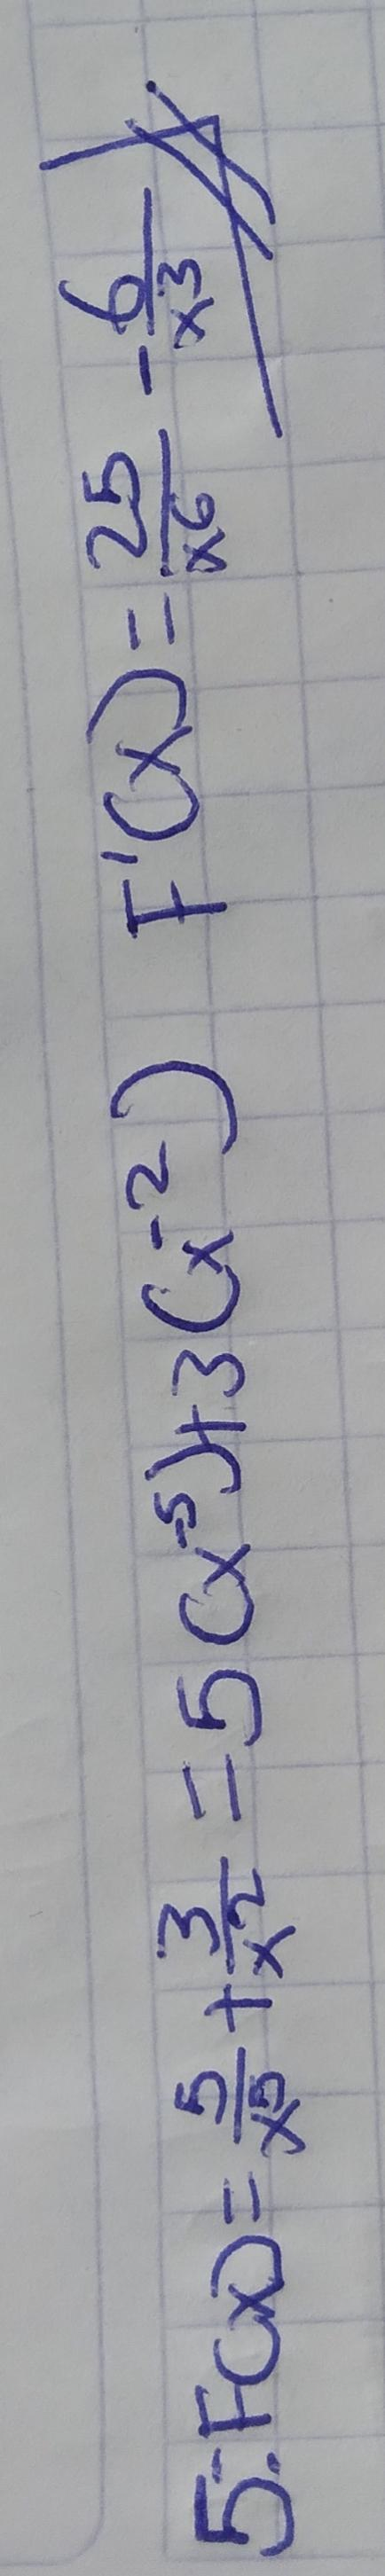 5. F(x) = 5/x⁵ + 3/x² = 5(x⁻⁵) + 3(x⁻²) F'(x) = 25/x⁶ - 6/x³